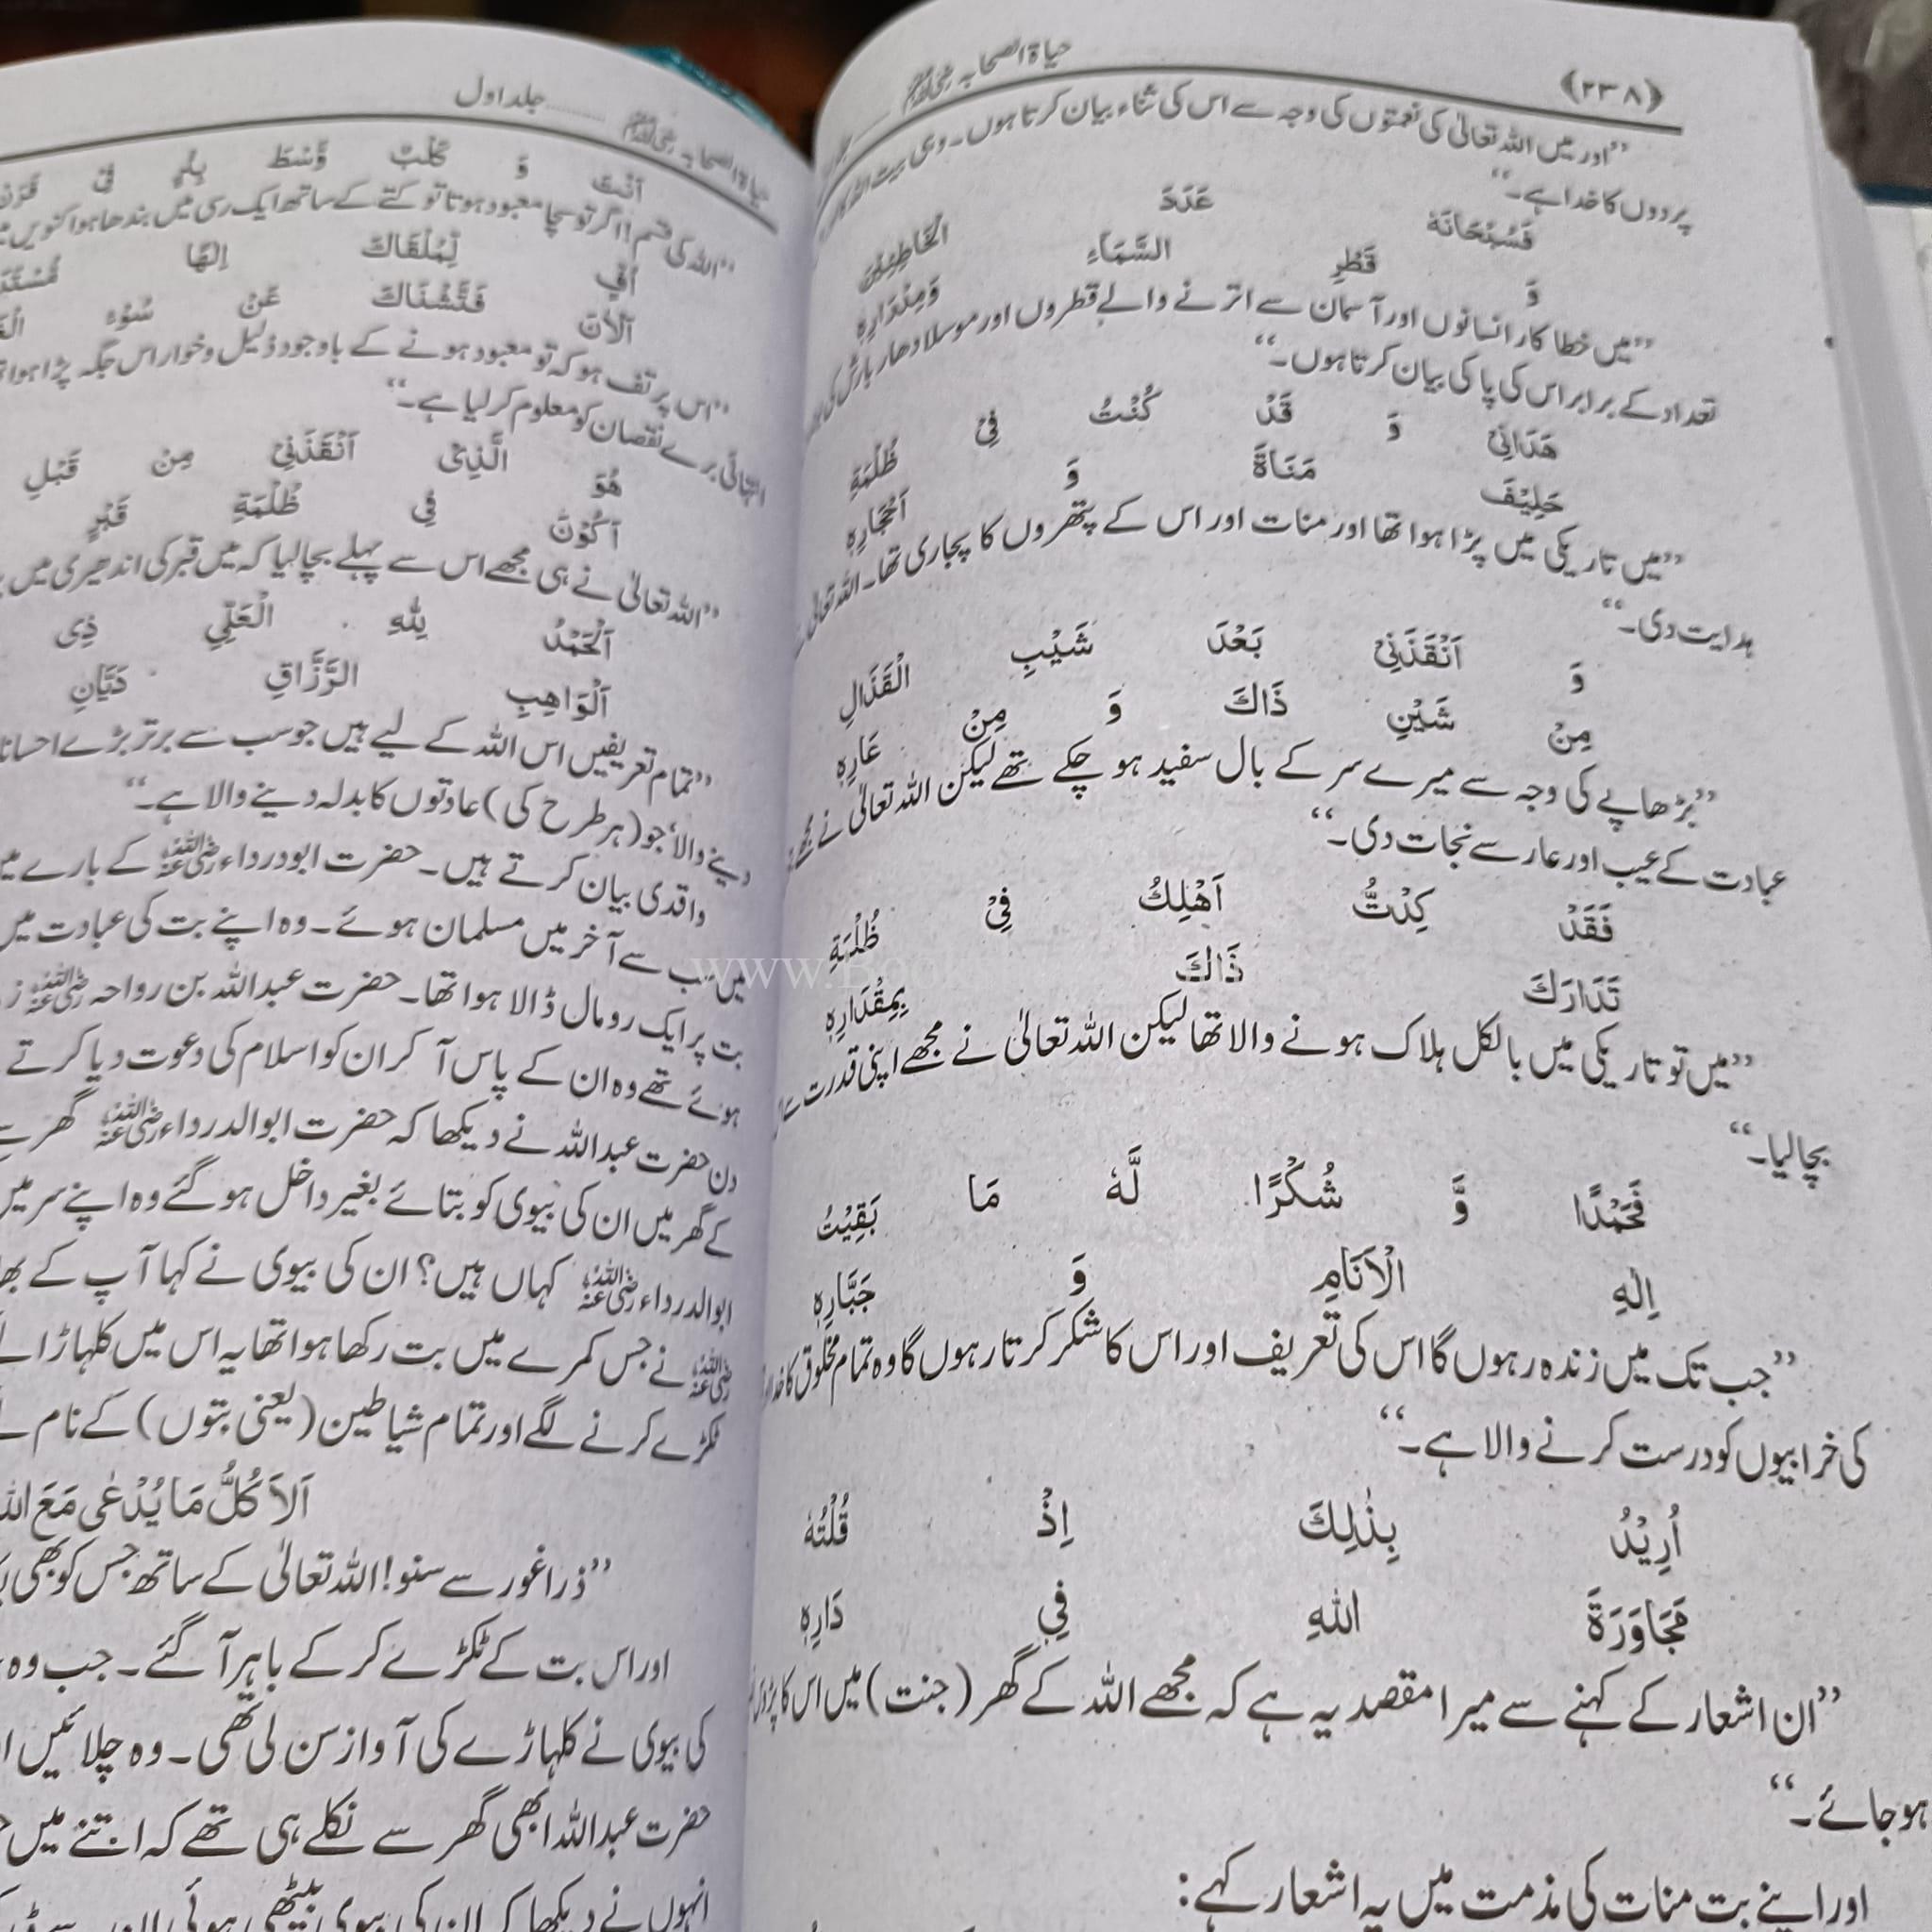 ﴿۲۳۸﴾ حیاۃ الصحابہ رضی اللہ عنہم
”اور میں اللہ تعالیٰ کی نعمتوں کی وجہ سے اس کی ثناء بیان کرتا ہوں۔ وہی بیت اللہ کا اور
پردوں کا خدا ہے۔“
فَسُبْحَانَهٗ عَدَدَ الْخَاطِئِيْنَ
وَ قَطْرِ السَّمَآءِ وَمِدْرَارِهٖ
”میں خطا کار انسانوں اور آسمان سے اترنے والے قطروں اور موسلا دھار بارش کی
تعداد کے برابر اس کی پاکی بیان کرتا ہوں۔“
هَدَانِیْ وَ قَدْ كُنْتُ فِیْ ظُلْمَةٍ
حَلِیْفَ مَنَاةَ وَ اَحْجَارِهٖ
”میں تاریکی میں پڑا ہوا تھا اور منات اور اس کے پتھروں کا پجاری تھا۔ اللہ تعالیٰ
ہدایت دی۔“
وَ اَنْقَذَنِیْ بَعْدَ شَیْبِ الْقَذَالِ
مِنْ شَیْنِ ذَاكَ وَ مِنْ عَارِهٖ
”بڑھاپے کی وجہ سے میرے سر کے بال سفید ہو چکے تھے لیکن اللہ تعالیٰ نے مجھے
عبادت کے عیب اور عار سے نجات دی۔“
فَقَدْ كِدْتُّ اَهْلِكُ فِیْ ظُلْمَةٍ
تَدَارَكَ ذَاكَ بِمِقْدَارِهٖ
”میں تو تاریکی میں بالکل ہلاک ہونے والا تھا لیکن اللہ تعالیٰ نے مجھے اپنی قدرت سے
بچا لیا۔“
فَحَمْدًا وَّ شُكْرًا لَّهٗ مَا بَقِیْتُ
اِلٰهِ الْاَنَامِ وَ جَبَّارِهٖ
”جب تک میں زندہ رہوں گا اس کی تعریف اور اس کا شکر کرتا رہوں گا وہ تمام مخلوق کا خدا
کی خرابیوں کو درست کرنے والا ہے۔“
اُرِیْدُ بِذٰلِكَ اِذْ قُلْتُهٗ
مُجَاوَرَةَ اللّٰهِ فِی دَارِهٖ
”ان اشعار کے کہنے سے میرا مقصد یہ ہے کہ مجھے اللہ کے گھر (جنت) میں اس کا پڑوس
ہو جائے۔“
اور اپنے بت منات کی مذمت میں یہ اشعار کہے:
حیاۃ الصحابہ رضی اللہ عنہم ........ جلد اول
اَنْتَ وَ كَلْبٌ وَّسْطَ بِئْرٍ فِیْ قَرَنْ
”اللہ کی قسم! اگر تو سچا معبود ہوتا تو کتے کے ساتھ ایک رسی میں بندھا ہوا کنویں میں
اُفٍّ لِّمُلْقَاكَ اِلٰهًا
اَلْاٰنَ فَتَّشْنَاكَ عَنْ سُوْءِ
”اس پر تف ہو کہ تو معبود ہونے کے باوجود ذلیل و خوار اس جگہ پڑا ہوا
انتہائی برے نقصان کو معلوم کر لیا ہے۔“
هُوَ الَّذِیْ اَنْقَذَنِیْ مِنْ قَبْلِ
اَكُوْنَ فِیْ ظُلْمَةِ قَبْرٍ
”اللہ تعالیٰ نے ہی مجھے اس سے پہلے بچا لیا کہ میں قبر کی اندھیری میں
اَلْحَمْدُ لِلّٰهِ الْعَلِیِّ ذِی
اَلْوَاهِبِ الرَّزَّاقِ دَیَّانِ
”تمام تعریفیں اس اللہ کے لیے ہیں جو سب سے برتر بڑے
دینے والا‘ جو (ہر طرح کی) عادتوں کا بدلہ دینے والا ہے۔“
واقدی بیان کرتے ہیں۔ حضرت ابودرداء رضی اللہ عنہ کے بارے میں
میں سب سے آخر میں مسلمان ہوئے۔ وہ اپنے بت کی عبادت میں
بت پر ایک رومال ڈالا ہوا تھا۔ حضرت عبداللہ بن رواحہ رضی اللہ عنہ
ہوئے تھے وہ ان کے پاس آ کر ان کو اسلام کی دعوت دیا کرتے
دن حضرت عبداللہ نے دیکھا کہ حضرت ابوالدرداء رضی اللہ عنہ گھر سے
کے گھر میں ان کی بیوی کو بتائے بغیر داخل ہو گئے وہ اپنے سر میں
ابوالدرداء رضی اللہ عنہ کہاں ہیں؟ ان کی بیوی نے کہا آپ کے
رضی اللہ عنہ نے جس کمرے میں بت رکھا ہوا تھا یہ اس میں کلہاڑا لے
ٹکڑے کرنے لگے اور تمام شیاطین (یعنی بتوں) کے نام لے
اَلَا كُلُّ مَا یُدْعٰی مَعَ اللّٰهِ
”ذرا غور سے سنو! اللہ تعالیٰ کے ساتھ جس کو بھی
اور اس بت کے ٹکڑے کر کے باہر آ گئے۔ جب وہ
کی بیوی نے کلہاڑے کی آواز سن لی تھی۔ وہ چلائیں
حضرت عبداللہ ابھی گھر سے نکلے ہی تھے کہ اتنے میں
انہوں نے دیکھا کہ ان کی بیوی بیٹھی ہوئی